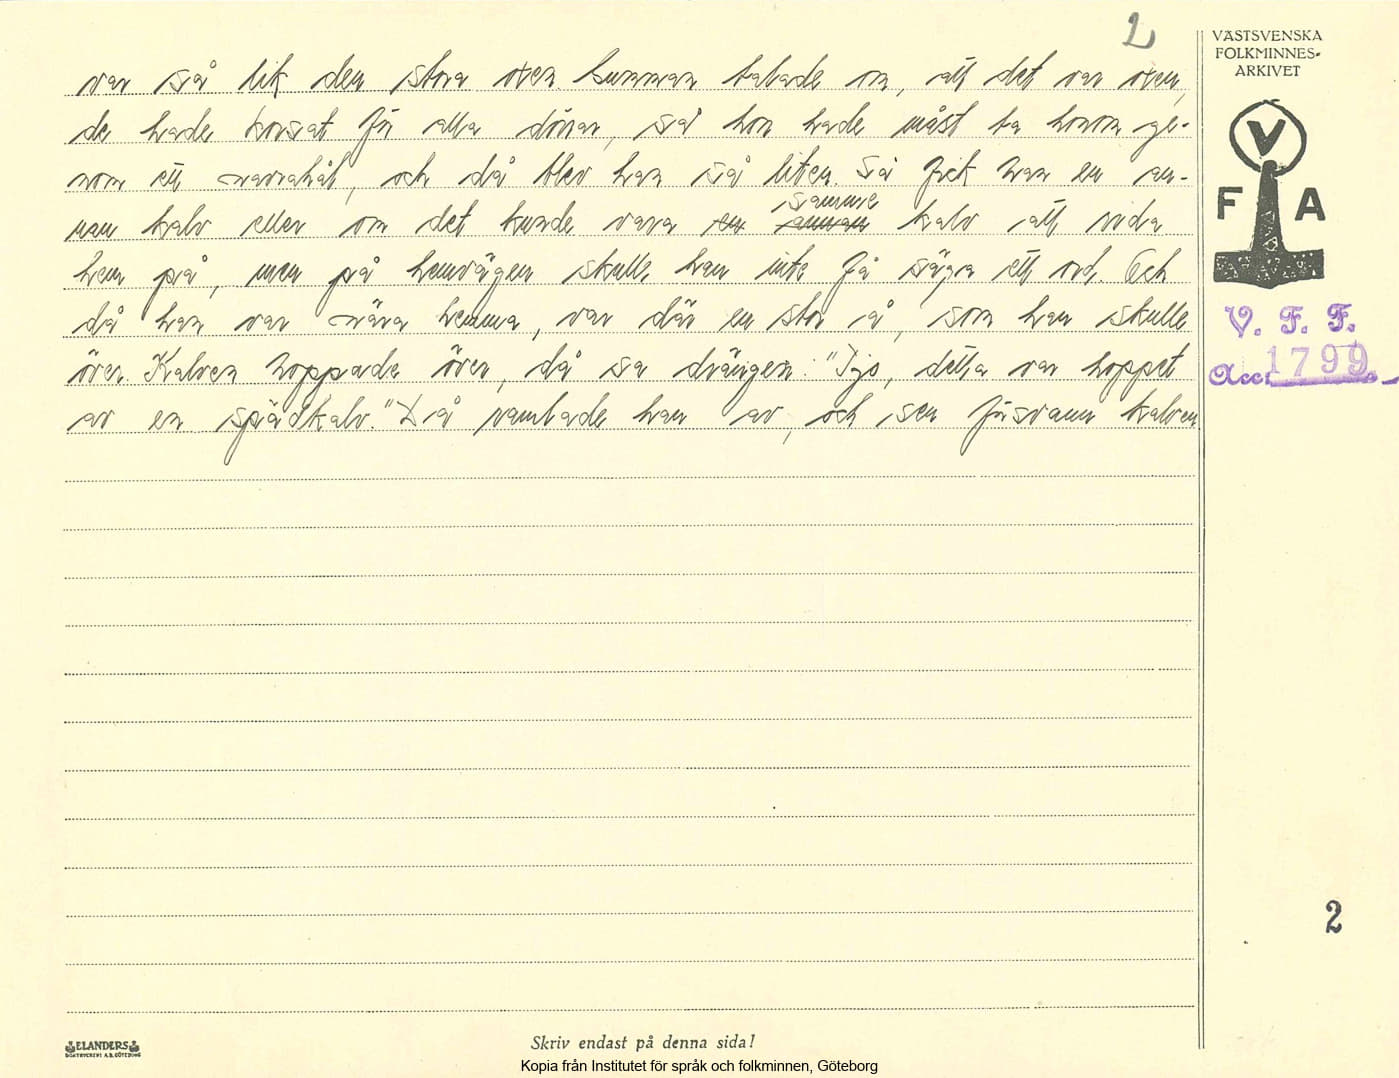 2
VÄSTSVENSKA
FOLKMINNES-
ARKIVET
V
F A
V. F. F.
Acc: 1799
var så lik den stora oxen. Gumman talade om, att det var oxen,
de hade korsat för alla dörrar, så hon hade måst ta honom ge-
nom ett navrahål, och då blev han så liten. Så fick han en an-
nan kalv eller om det kunde vara en annan samme kalv att rida
hem på, men på hemvägen skulle han inte få säga ett ord. Och
då han var nära hemma, var där en stor å, som han skulle
över. Kalven hoppade över, då sa drängen: "Tjo, detta var hoppet
av en spädkalv." Då ramlade han av, och sen försvann kalven
2
ELANDERS
BOKTRYCKERI A.B. GÖTEBORG
Skriv endast på denna sida!
Kopia från Institutet för språk och folkminnen, Göteborg